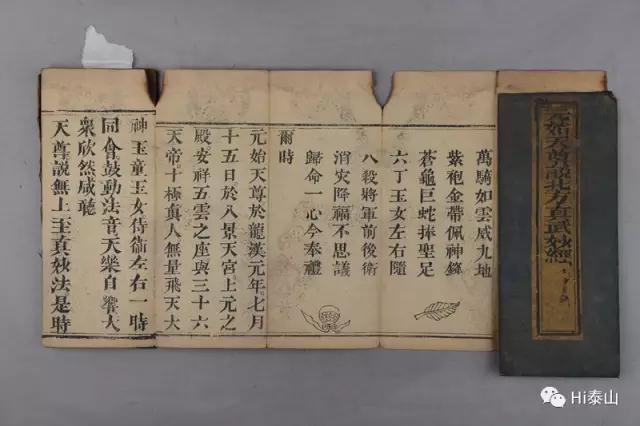 元始天尊說北方真武妙經
萬騎如雲威九地
紫袍金帶佩神鋒
蒼龜巨蛇捧聖足
六丁玉女左右隨
八殺將軍前後衛
消灾降福不思議
歸命一心今奉禮
爾時
元始天尊於龍漢元年七月
十五日於八景天宮上元之
殿安祥五雲之座與三十六
天帝十極真人無量飛天大
神玉童玉女侍衛左右一時
同會鼓動法音天樂自響大
衆欣然咸聽
天尊説無上至真妙法是時
Hi泰山